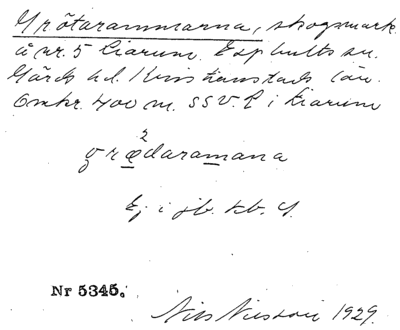 Grötarammarna, skogsmark
å nr. 5 Liarum. Esphults sn.
Gärds hd. Kristianstads län.
Omkr. 400 m. SSV. f i Liarum
2
grædaramana
Ej i jb. kb. G.
Nr 5345.
Nils 1929.